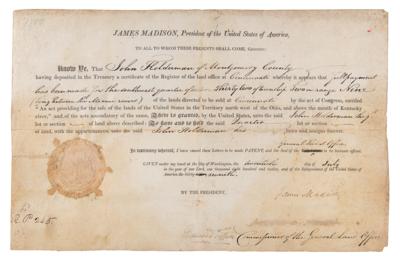 JAMES MADISON, President of the United States of America,
TO ALL TO WHOM THESE PRESENTS SHALL COME, Greeting:
Know Ye, That John Holderman of Montgomery County
having deposited in the Treasury a certificate of the Register of the land office at Cincinnati whereby it appears that full payment
has been made for the quarter of section thirty two of township two in range Nine
(lying between the Miami rivers) of the lands directed to be sold at Cincinnati by the act of Congress, entitled
"An act providing for the sale of the lands of the United States in the Territory north west of the Ohio, and above the mouth of Kentucky
river," and of the acts amendatory of the same, There is granted, by the United States, unto the said John Holderman the quarter
lot or section of land above described: To have and to hold the said quarter
of land, with the appurtenances, unto the said John Holderman his heirs and assigns forever.
In testimony whereof, I have caused these Letters to be made PATENT, and the Seal of the General Land Office to be hereunto affixed.
GIVEN under my hand at the City of Washington, the day of July
in the year of our Lord, one thousand eight hundred and and of the Independence of the United States
of America the thirty
BY THE PRESIDENT,
James Madison
Commissioner of the General Land Office